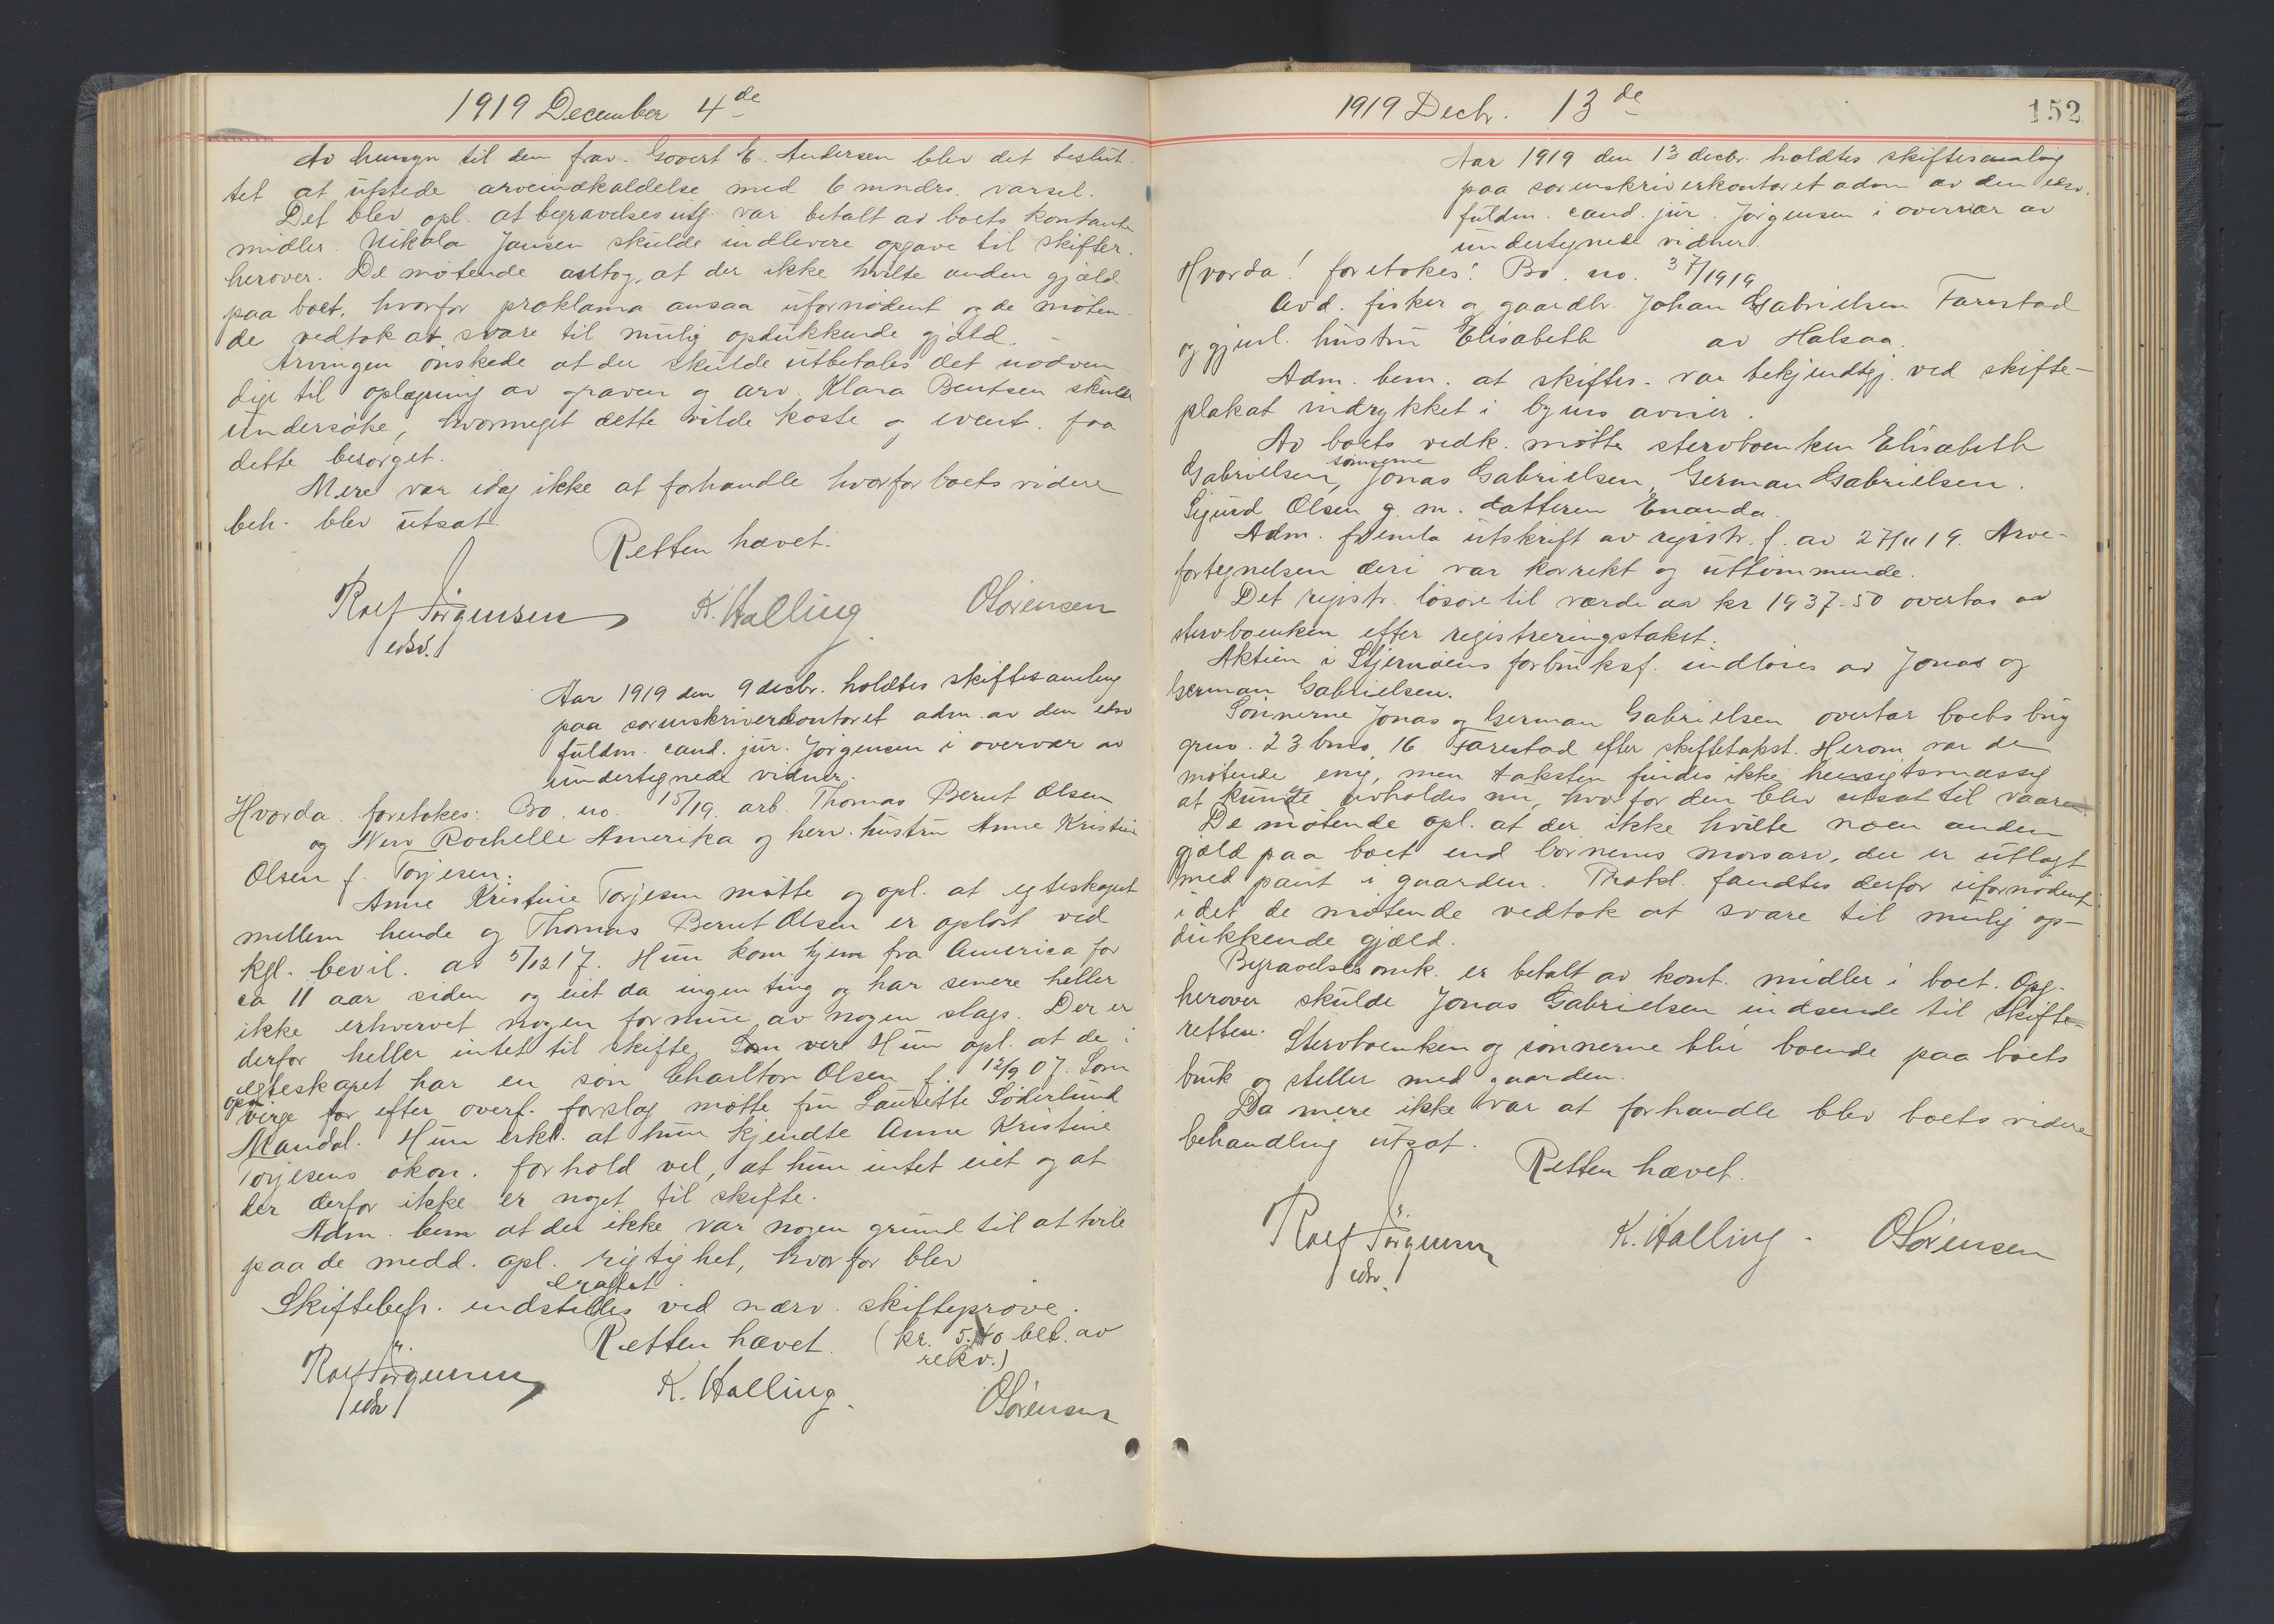 1919 December 4de
Av hensyn til den frav. Govert E. Andersen blev det beslut-
tet at utstede arveindkaldelse med 6 mndrs. varsel.
Det blev opl. at begravelsesutg. var betalt av boets kontante
midler. Nikola Jansen skulde indlevere opgave til skifter.
herover. De møtende antog, at der ikke hvilte anden gjæld
paa boet, hvorfor proklama ansaa ufornødent og de møten-
de vedtok at svare til mulig opdukkende gjæld.
Arvingen ønskede at der skulde utbetales det nødven
dige til oplægning av graven og arv. Klara Bentsen skulde
undersøke, hvormeget dette vilde koste og event. faa
dette besørget.
Mere var idag ikke at forhandle hvorfor boets videre
beh. blev utsat.
Retten hævet.
Rolf Jørgensen K. Halling OSørensen
edsv.
Aar 1919 den 9 decbr. holdtes skiftesamling
paa sorenskriverkontoret adm. av den edsv
fuldm. cand. jur. Jørgensen i overvær av
undertegnede vidner.
Hvorda foretokes: Bo. no. 15/19. arb. Thomas Bernt Olsen
og New Rochelle Amerika og herv. hustru Anne Kristine
Olsen f. Torjesen.
Anne Kristine Torjesen møtte og opl. at egteskapet
mellem hende og Thomas Bernt Olsen er opløst ved
kgl. bevil. av 5/12 17. Hun kom hjem fra America for
ca 11 aar siden og eiet da ingen ting og har senere heller
ikke erhvervet nogen formue av nogen slags. Der er
derfor heller intet til skifte. Som vere Hun opl. at de i
egteskapet har en søn Charlton Olsen f. 12/9 07. Som
opn.
verge for efter overf. forslag møtte fru Laurette Søderlund
Mandal. Hun erkl. at hun kjendte Anne Kristine
Torjesens økon. forhold vel, at hun intet eiet og at
der derfor ikke er noget til skifte.
Adm. bem. at der ikke var nogen grund til at tvile
paa de medd. opl. rigtighet, hvorfor blev
eragtet
Skiftebeh. indstilles ved nærv. skifteprøve.
Retten hævet. (kr. 5.40 bet. av
rekv.)
Rolf Jørgensen K. Halling. OSørensen
edsv
1919 Decbr. 13de
152
Aar 1919 den 13 decbr. holdtes skiftesamling
paa sorenskriverkontoret adm av den edsv.
fuldm. cand. jur. Jørgensen i overvær av
undertegnede vidner.
Hvorda! foretokes! Bo. no. 37/1919
Avd. fisker og gaardbr. Johan Gabrielsen Farestad
og gjenl. hustru Elisabeth av Halsaa.
Adm. bem. at skiftes. var bekjendtgj. ved skifte-
plakat indrykket i byens aviser.
Av boets vedk. møtte stervboenken Elisabeth
sønnerne
Gabrielsen, Jonas Gabrielsen, German Gabrielsen.
Sigurd Olsen g. m. datteren Enanda.
Adm. fremla utskrift av registr. f. av 27/11 19. Arve-
fortegnelsen deri var korrekt og uttømmende.
Det registr. løsøre til værdi av kr 1937.50 overtas av
stervboenken efter registreringstakst.
Aktien i Stjernøens forbruksf. indløses av Jonas og
German Gabrielsen.
Sønnerne Jonas og German Gabrielsen overtar boets brug
grno. 23 bno. 16 Farestad efter skiftetakst. Herom var de
møtende enig, men taksten findes ikke hensigtsmæssig
at kunde avholdes nu, hvorfor den blev utsat til vaaren
De møtende opl. at der ikke hvilte noen anden
gjæld paa boet end børnenes morsarv, der er utlagt
med pant i gaarden. Prokl. fandtes derfor ufornødent
idet de møtende vedtok at svare til mulig op-
dukkende gjæld.
Begravelsesomk. er betalt av kont. midler i boet. Opg.
herover skulde Jonas Gabrielsen indsende til skifte-
retten.
Stervboenken og sønnerne blir boende paa boets
bruk og steller med gaarden.
Da mere ikke var at forhandle blev boets videre
behandling utsat.
Retten hævet.
Rolf Jørgensen K. Halling. OSørensen
edsv.